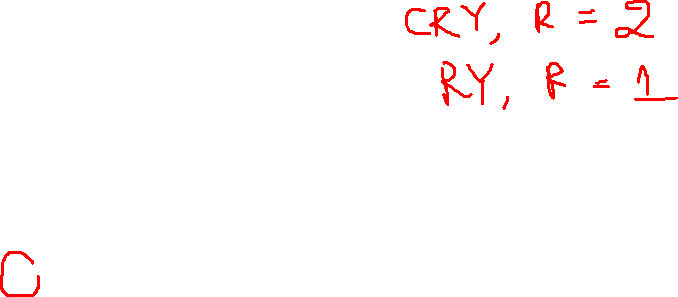 CRY, R = 2
RY, R = 1
C